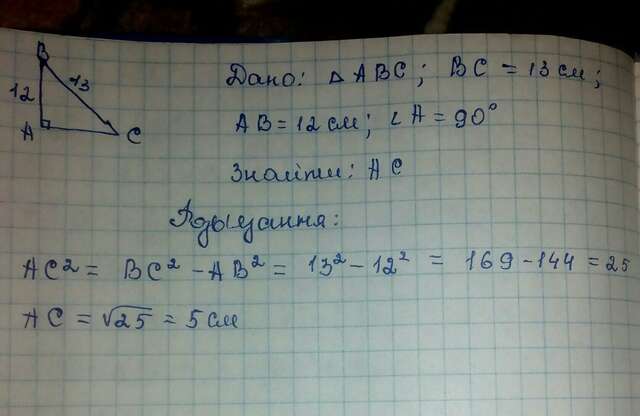 B
12
13
A
C
Дано: △ABC; BC = 13 см;
AB = 12 см; ∠A = 90°
Знайти: AC
AC² = BC² - AB² = 13² - 12² = 169 - 144 = 25
AC = √25 = 5 см